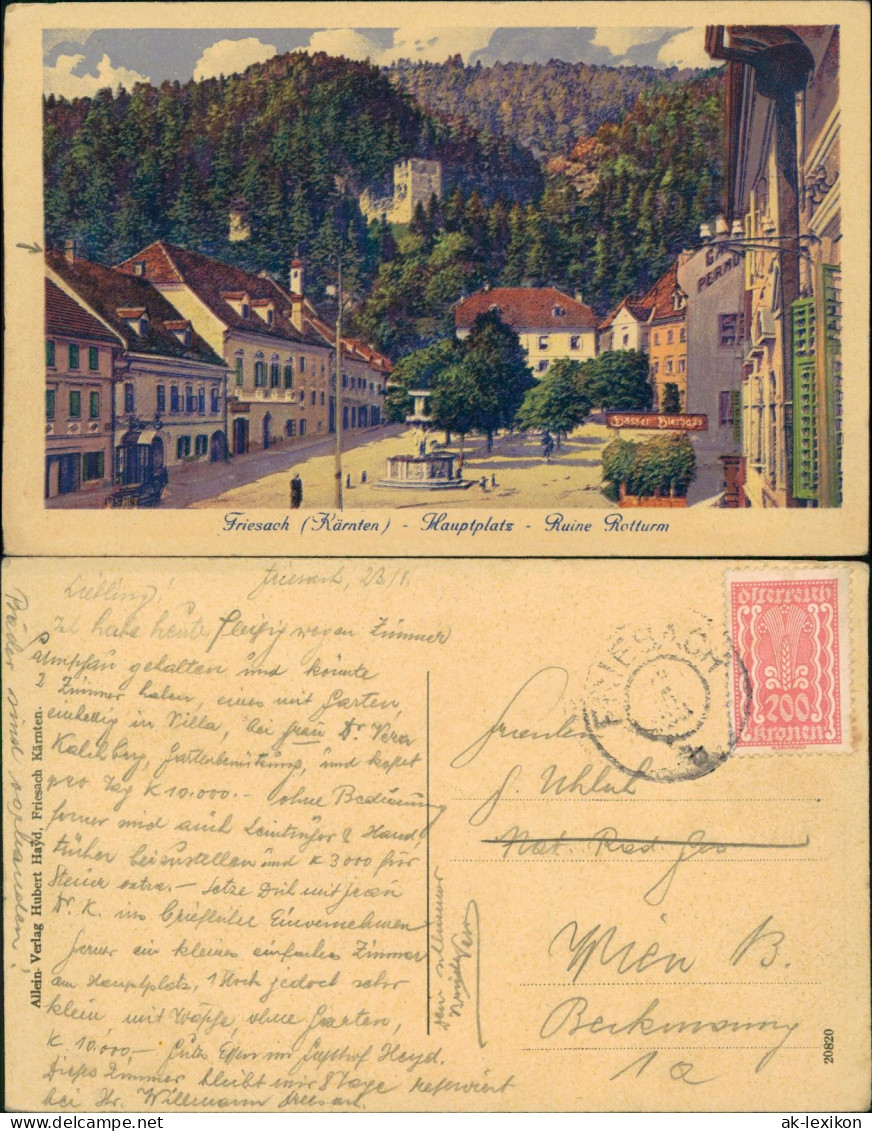 Gösser Bierhaus
Friesach (Kärnten) - Hauptplatz - Ruine Rotturm
Friesach, 23/8.
Liebling!
Ich habe heute fleißig wegen Zimmer
gehalten und könnte
2 Zimmer haben, eines mit Garten,
in Villa, bei Frau Dr. Vera
und kostet
pro Tag K 10.000.- ohne Bedienung
ferner sind auch Leintücher & Hand
tücher beizustellen und K 3000 für
Steuer extra. - Setze Dich mit Frau
Dr. K. ins briefliche Einvernehmen
ferner ein kleines einfaches Zimmer
am Hauptplatz, 1 Stock jedoch sehr
klein mit Wäsche, ohne Garten,
K. 10.000,- Gutes Essen im Gasthof Heyd.
Dieses Zimmer bleibt mir 8 Tage reserviert
bei Hr. Willmann
Bäder sind vorhanden!
Allein-Verlag Hubert Hayd, Friesach Kärnten.
Österreich
200
Kronen
FRIESACH
Fräulein
Wien
1a
20820
ak-lexikon